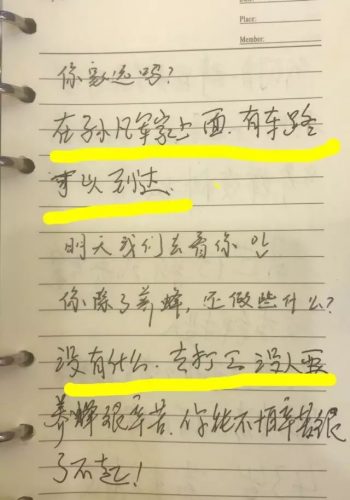 Date:
Place:
Member:
你家远吗?
在孙凡军家上面.有车路
可以到达.
明天我们去看你吖
你除了养蜂,还做些什么?
没有什么.去打工没人要
养蜂很辛苦.你能不怕辛苦很
了不起!